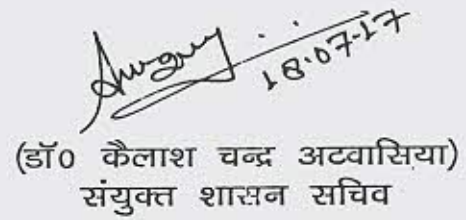 18.07.17
(डॉ0 कैलाश चन्द्र अटवासिया)
संयुक्त शासन सचिव